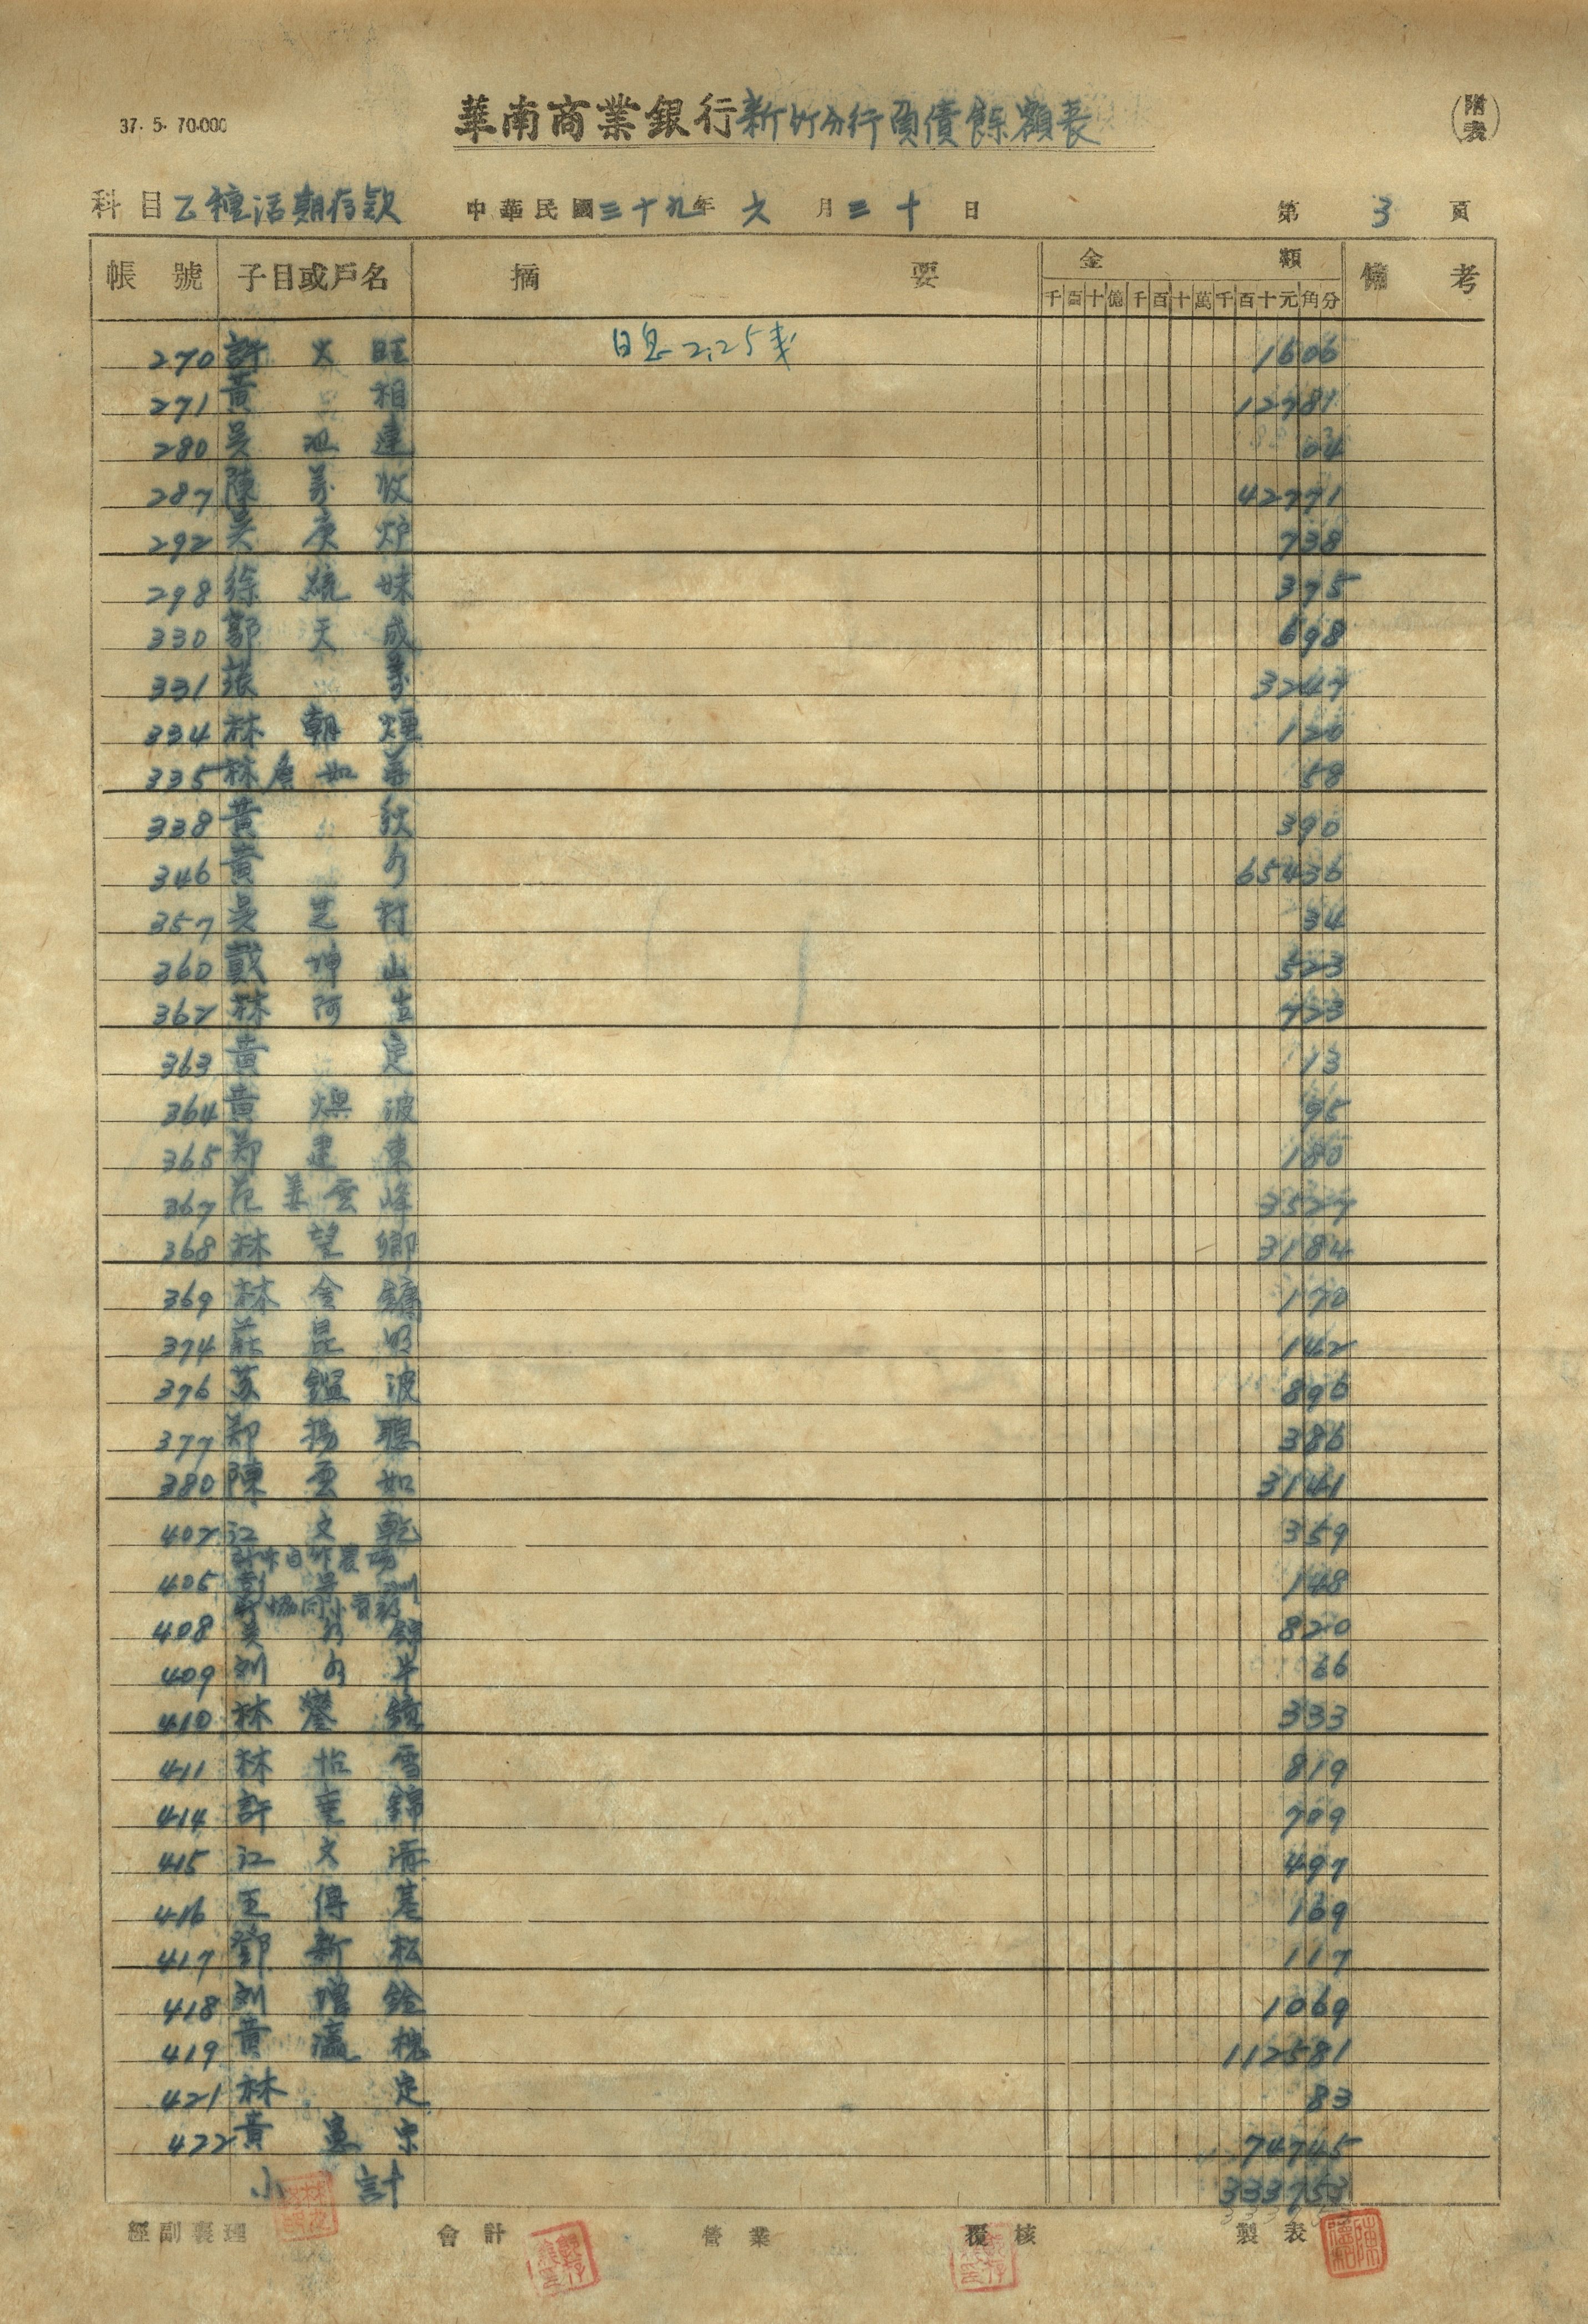 37. 5. 70.000
華南商業銀行新竹分行負債餘額表
(附表)
科目乙種活期存款 中華民國三十九年六月三十日 第3頁
帳號 子目或戶名 摘要 金額 備考
千百十億千百十萬千百十元角分
270 許火旺 日息2.25 1606
271 黃相 12781
280 吳池連 24
287 陳義 42771
292 吳庚炉 738
298 徐妹 375
330 郭天成 698
331 張 3247
334 林朝煙 120
335 林詹如 58
338 黃秋 390
346 黃 65436
357 吳芝村 34
360 戴坤山 523
362 林阿 723
363 黃定 13
364 黃波 95
365 鄭建東 180
367 范姜雲峰 3527
368 林望鄉 3184
369 林金鏞 170
374 莊昆明 142
376 蘇鑑波 896
377 鄭揚聰 386
380 陳雲如 3141
402 江文乾 359
405 148
408 吳錦 820
409 劉 66
410 林鏡 333
411 林怡雪 819
414 許錦 709
415 江文清 497
416 王傳基 169
417 鄧新松 117
418 劉增銓 1069
419 黃瀛槐 112581
421 林定 83
422 黃宗 74745
小計 333753
經副襄理 會計 營業 覆核 製表